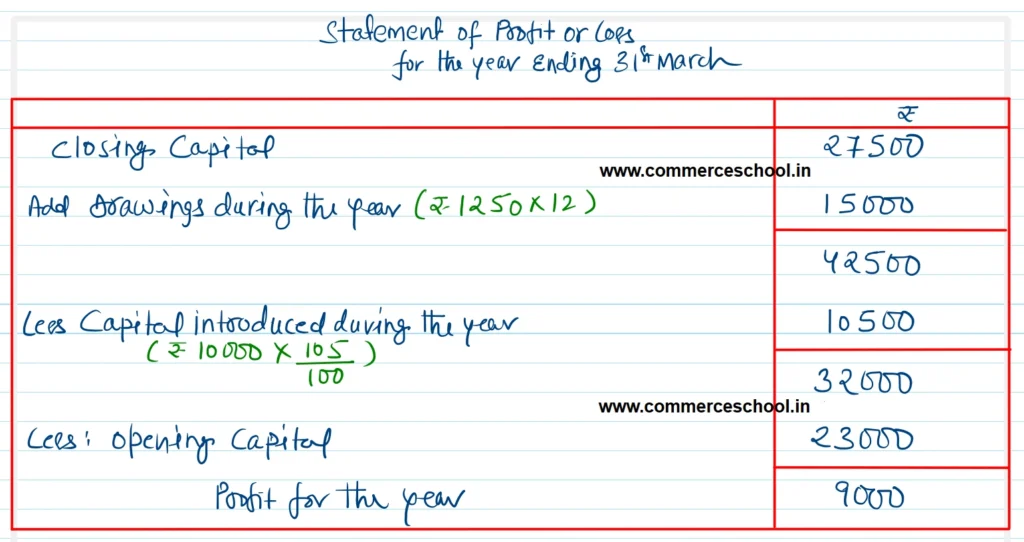 Statement of Profit or Loss
for the year Ending 31st March
₹
Closing Capital 27500
www.commerceschool.in
Add Drawings during the year (₹ 1250 × 12) 15000
42500
Less Capital introduced during the year 10500
(₹ 10000 × 105/100)
32000
www.commerceschool.in
Less: Opening Capital 23000
Profit for the year 9000